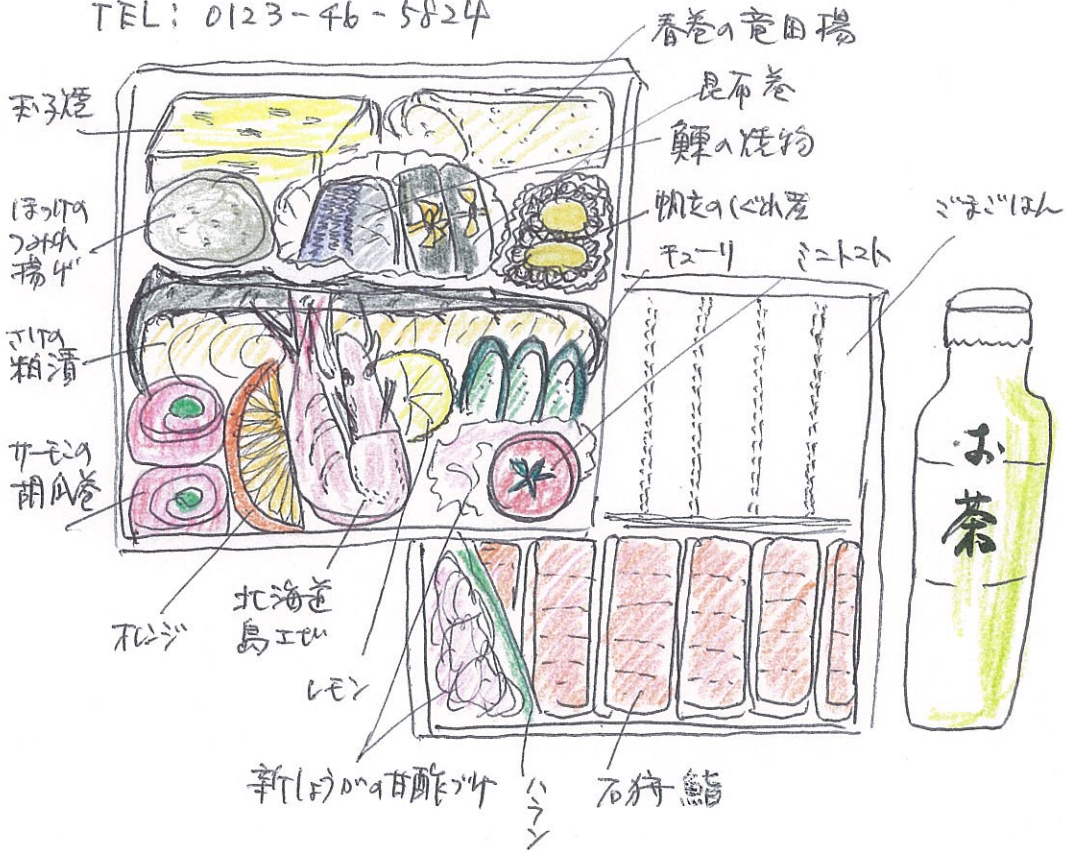 TEL: 0123-46-5824
春巻の竜田揚
昆布巻
鰊の焼物
帆立のしぐれ煮
キューリ
ミニトマト
ごまごはん
玉子焼
ほっけの
つみれ
揚げ
さけの
粕漬
サーモンの
胡瓜巻
お
茶
オレンジ
北海道
島エビ
レモン
新しょうがの甘酢づけ
ハラン
石狩鮨